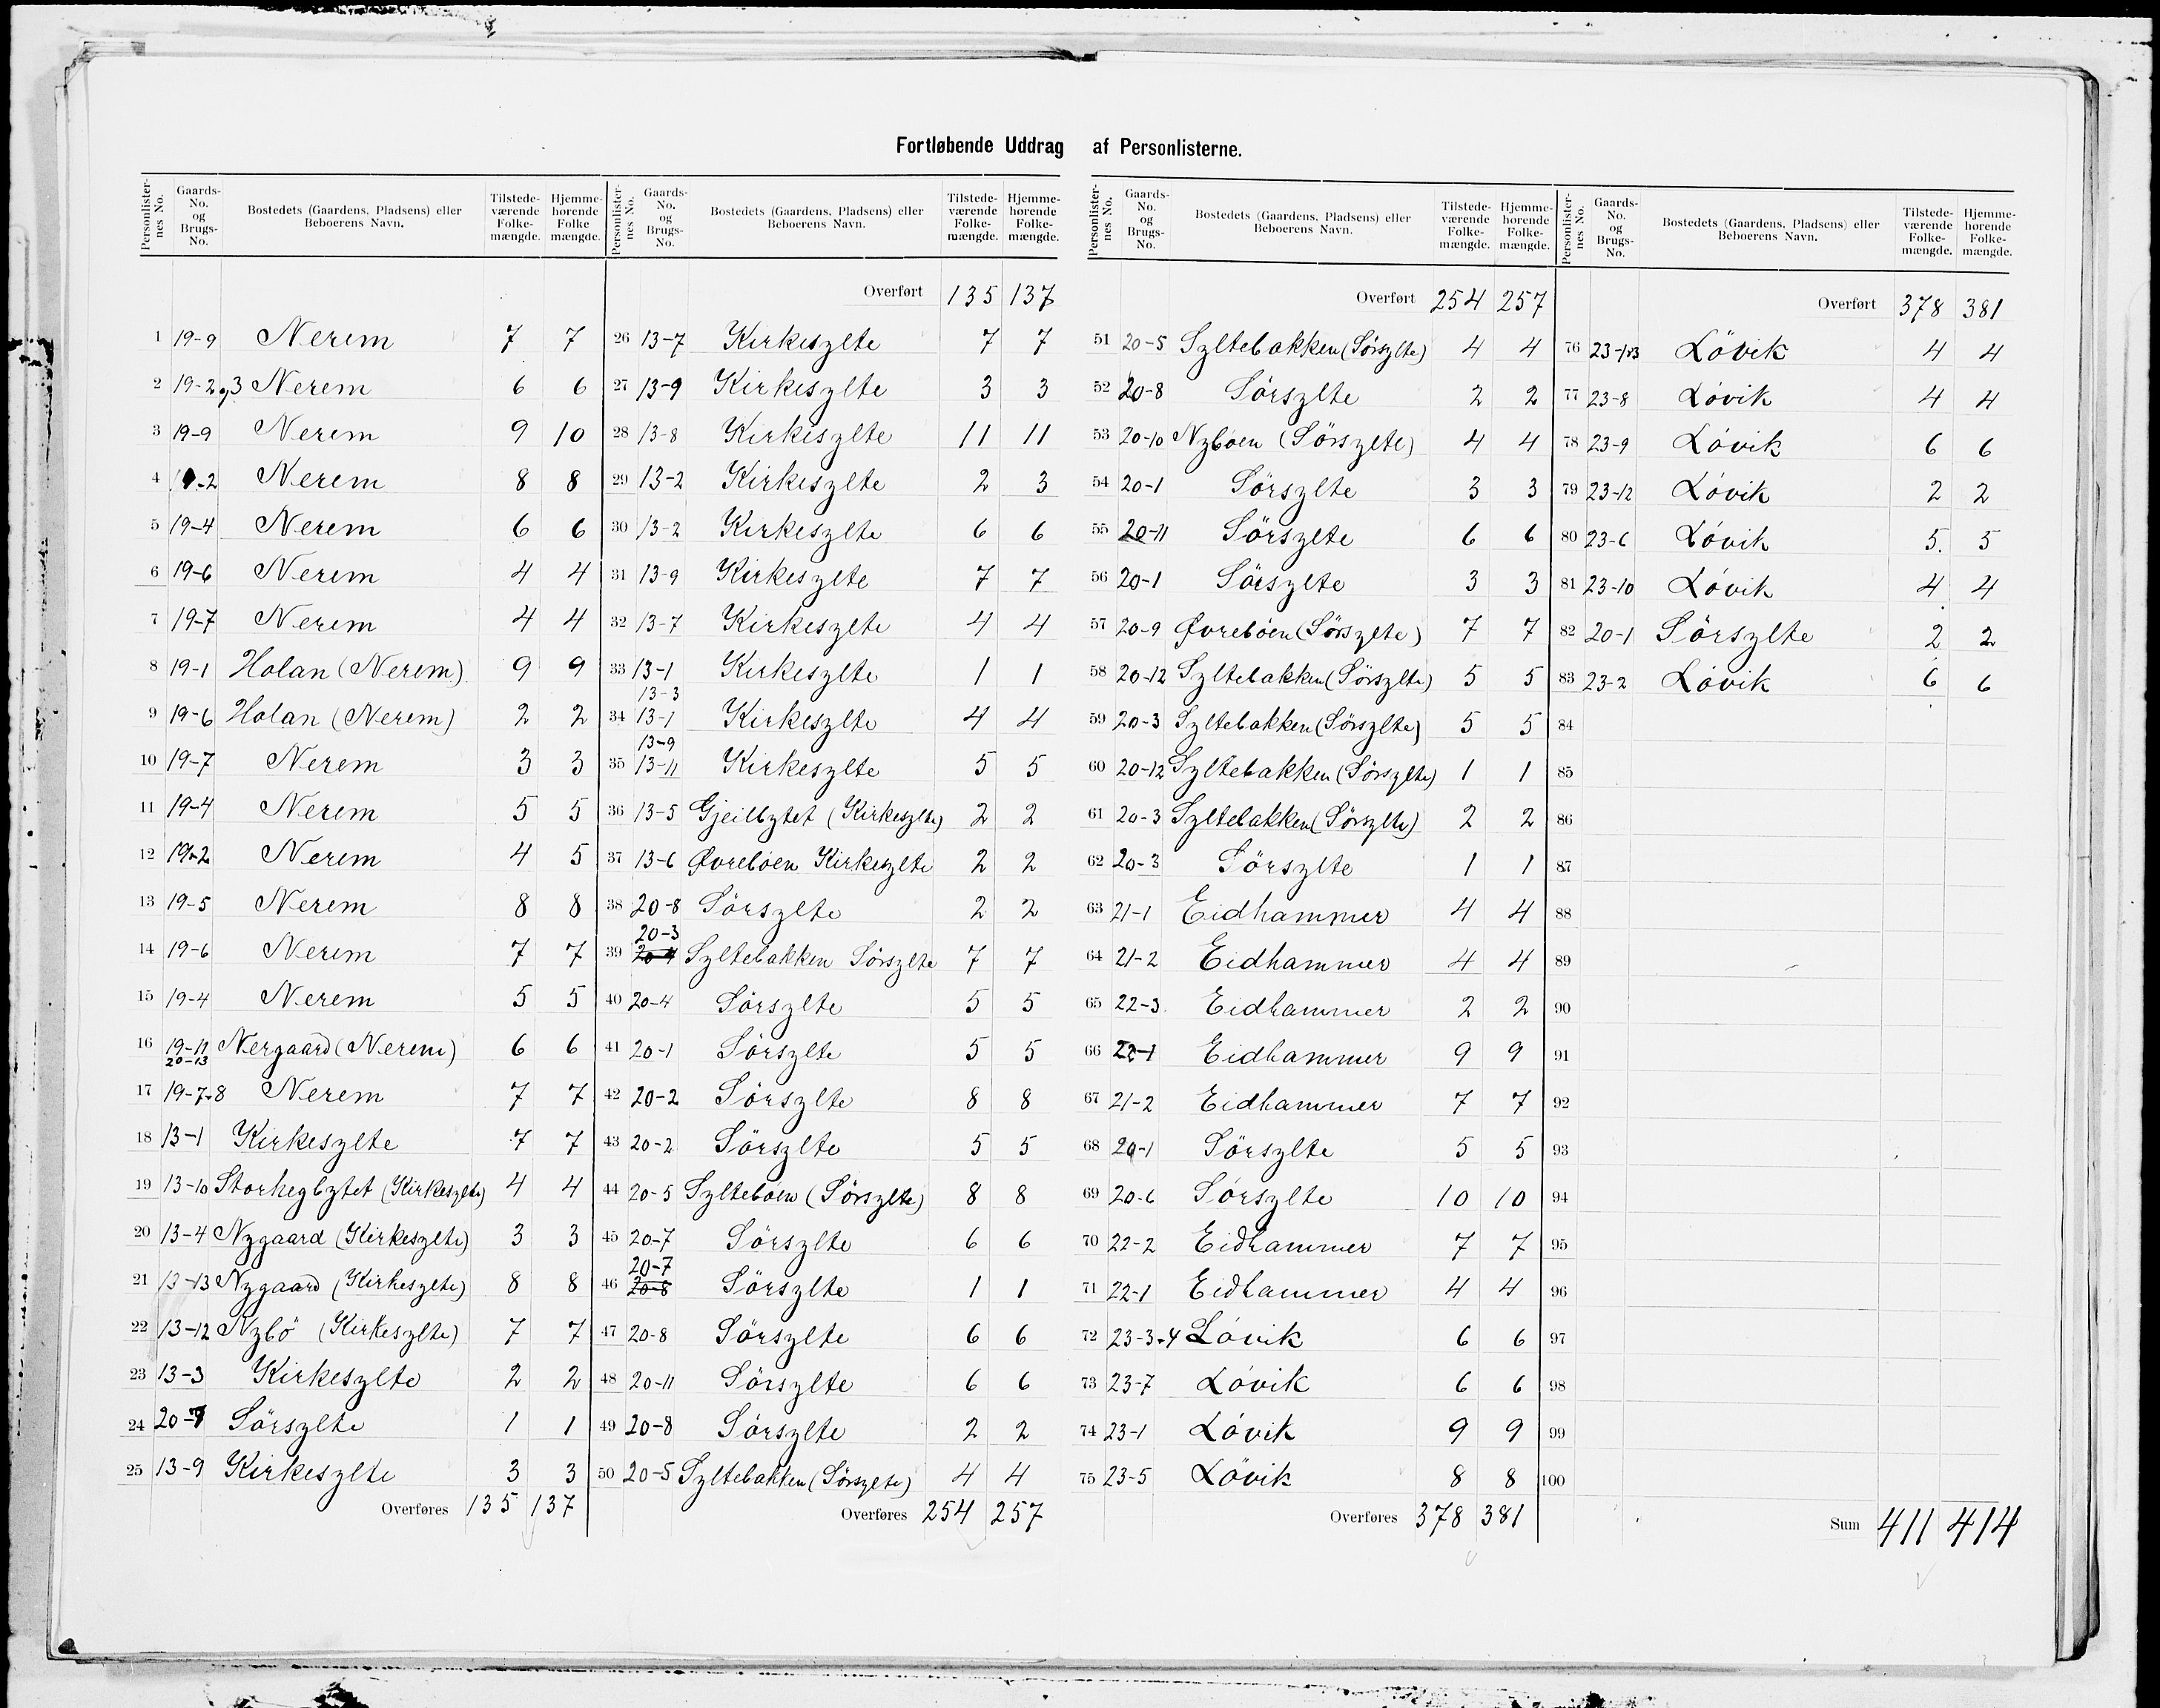 Fortløbende Uddrag af Personlisterne.
Personlisternes No. Gaards-No. og Brugs-No. Bostedets (Gaardens, Pladsens) eller Beboerens Navn. Tilstedeværende Folkemængde. Hjemmehørende Folkemængde.
1 19-9 Nerem 7 7
2 19-2,3 Nerem 6 6
3 19-9 Nerem 9 10
4 19-2 Nerem 8 8
5 19-4 Nerem 6 6
6 19-6 Nerem 4 4
7 19-7 Nerem 4 4
8 19-1 Holan (Nerem) 9 9
9 19-6 Holan (Nerem) 2 2
10 19-7 Nerem 3 3
11 19-4 Nerem 5 5
12 19-2 Nerem 4 5
13 19-5 Nerem 8 8
14 19-6 Nerem 7 7
15 19-4 Nerem 5 5
16 19-11 20-13 Nergaard (Nerem) 6 6
17 19-7+8 Nerem 7 7
18 13-1 Kirkesylte 7 7
19 13-10 Storhegbytet (Kirkesylte) 4 4
20 13-4 Nygaard (Kirkesylte) 3 3
21 13-13 Nygaard (Kirkesylte) 8 8
22 13-12 Nybö (Kirkesylte) 7 7
23 13-3 Kirkesylte 2 2
24 20-7 Sörsylte 1 1
25 13-9 Kirkesylte 3 3
Overføres 135 137
Personlisternes No. Gaards-No. og Brugs-No. Bostedets (Gaardens, Pladsens) eller Beboerens Navn. Tilstedeværende Folkemængde. Hjemmehørende Folkemængde.
Overført 135 137
26 13-7 Kirkesylte 7 7
27 13-9 Kirkesylte 3 3
28 13-8 Kirkesylte 11 11
29 13-2 Kirkesylte 2 3
30 13-2 Kirkesylte 6 6
31 13-9 Kirkesylte 7 7
32 13-7 Kirkesylte 4 4
33 13-1 Kirkesylte 1 1
34 13-3 13-1 Kirkesylte 4 4
35 13-9 13-11 Kirkesylte 5 5
36 13-5 Gjeilbytet (Kirkesylte) 2 2
37 13-6 Øvreböen Kirkesylte 2 2
38 20-8 Sörsylte 2 2
39 20-3 20-4 Syltebakken Sörsylte 7 7
40 20-4 Sörsylte 5 5
41 20-1 Sörsylte 5 5
42 20-2 Sörsylte 8 8
43 20-2 Sörsylte 5 5
44 20-5 Sylteböen (Sörsylte) 8 8
45 20-7 Sörsylte 6 6
46 20-7 20-8 Sörsylte 1 1
47 20-8 Sörsylte 6 6
48 20-11 Sörsylte 6 6
49 20-8 Sörsylte 2 2
50 20-5 Syltebakken (Sörsylte) 4 4
Overføres 254 257
Personlisternes No. Gaards-No. og Brugs-No. Bostedets (Gaardens, Pladsens) eller Beboerens Navn. Tilstedeværende Folkemængde. Hjemmehørende Folkemængde.
Overført 254 257
51 20-5 Syltebakken (Sörsylte) 4 4
52 20-8 Sörsylte 2 2
53 20-10 Nyböen (Sörsylte) 4 4
54 20-1 Sörsylte 3 3
55 20-11 Sörsylte 6 6
56 20-1 Sörsylte 3 3
57 20-9 Øvreböen (Sörsylte) 7 7
58 20-12 Syltebakken (Sörsylte) 5 5
59 20-3 Syltebakken (Sörsylte) 5 5
60 20-12 Syltebakken (Sörsylte) 1 1
61 20-3 Syltebakken (Sörsylte) 2 2
62 20-3 Sörsylte 1 1
63 21-1 Eidhammer 4 4
64 21-2 Eidhammer 4 4
65 22-3 Eidhammer 2 2
66 22-1 Eidhammer 9 9
67 21-2 Eidhammer 7 7
68 20-1 Sörsylte 5 5
69 20-6 Sörsylte 10 10
70 22-2 Eidhammer 7 7
71 22-1 Eidhammer 4 4
72 23-3+4 Lövik 6 6
73 23-7 Lövik 6 6
74 23-1 Lövik 9 9
75 23-5 Lövik 8 8
Overføres 378 381
Personlisternes No. Gaards-No. og Brugs-No. Bostedets (Gaardens, Pladsens) eller Beboerens Navn. Tilstedeværende Folkemængde. Hjemmehørende Folkemængde.
Overført 378 381
76 Lövik 4 4
77 23-8 Lövik 4 4
78 23-9 Lövik 6 6
79 23-12 Lövik 2 2
80 23-6 Lövik 5 5
81 23-10 Lövik 4 4
82 20-1 Sörsylte 2 2
83 23-2 Lövik 6 6
84
85
86
87
88
89
90
91
92
93
94
95
96
97
98
99
100
Sum 411 414